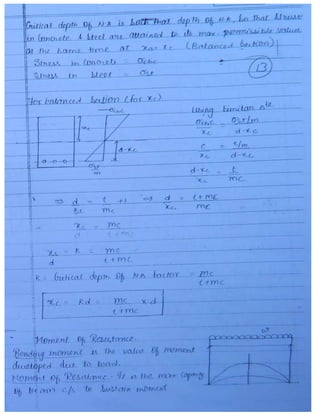 Critical depth of N.A is that depth of N.A, so that stress
in concrete & steel are attained to its max. permissible value
at the same time at xa = xc (Balanced Section)
Stress in concrete = σcbc
Stress in steel = σst
13
for balanced section (for xc)
σcbc
xc
d-xc
σst
m
Using similar Δle
σcbc = σst/m
xc d-xc
c = t/m
xc d-xc
d-xc = t
xc mc
⇒ d = t +1 ⇒ d = t+mc
xc mc xc mc
xc = mc
d t+mc
xc = k = mc
d t+mc
k = Critical depth of N.A factor = mc
t+mc
xc = kd = mc x d
t+mc
Moment of Resistance
Bending moment is the value of moment
developed due to load.
Moment of Resistance - It is the max capacity
of beam c/s to sustain moment